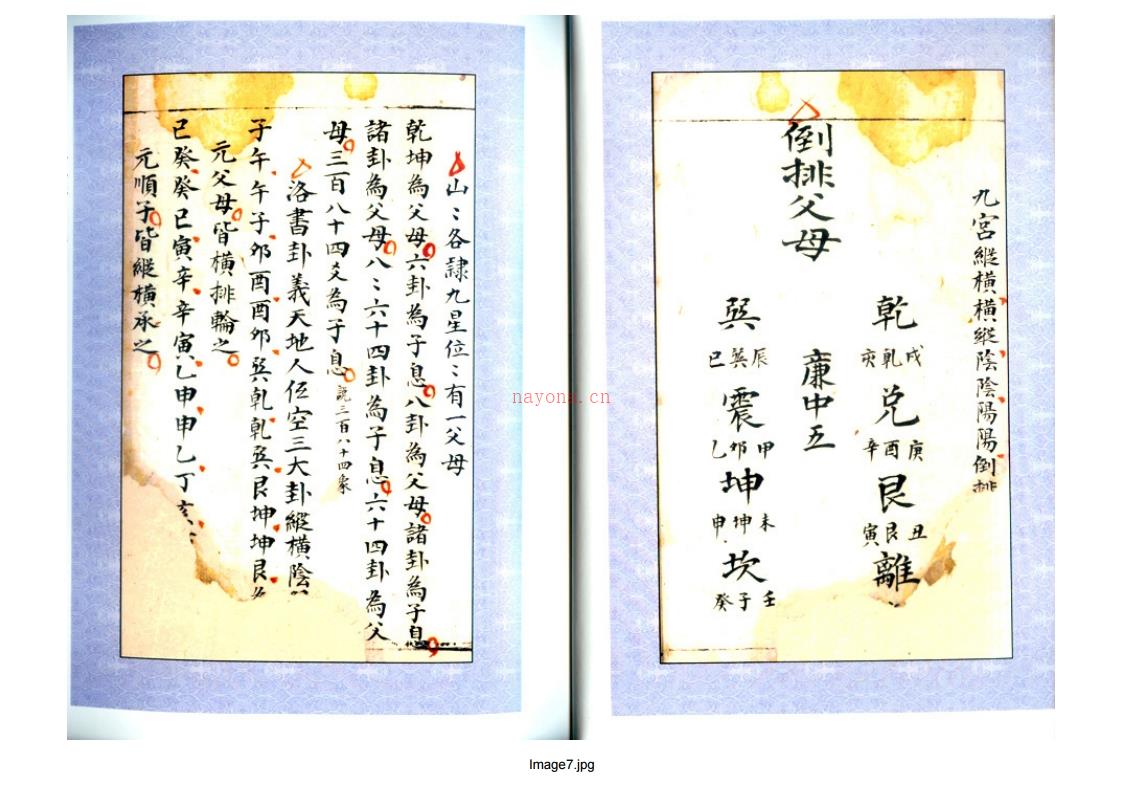 九宮縱橫橫縱陰陰陽陽倒排
乾
戌乾亥
兌
庚酉辛
艮
丑艮寅
離
廉中五
倒排父母
巽
辰巽巳
震
甲卯乙
坤
未坤申
坎
壬子癸
山:各隸九星位:有一父母
乾坤為父母六卦為子息八卦為父母諸卦為子息
諸卦為父母八:六十四卦為子息六十四卦為父
母三百八十四爻為子息説三百八十四象
洛書卦義天地人伍空三大卦縱橫陰
子午午子卯酉酉卯巽乹乹巽艮坤坤艮
元父母皆橫排輪之
巳癸癸巳寅辛辛寅乙申申乙丁亥
元順子皆縱橫承之
nayona.cn
Image7.jpg